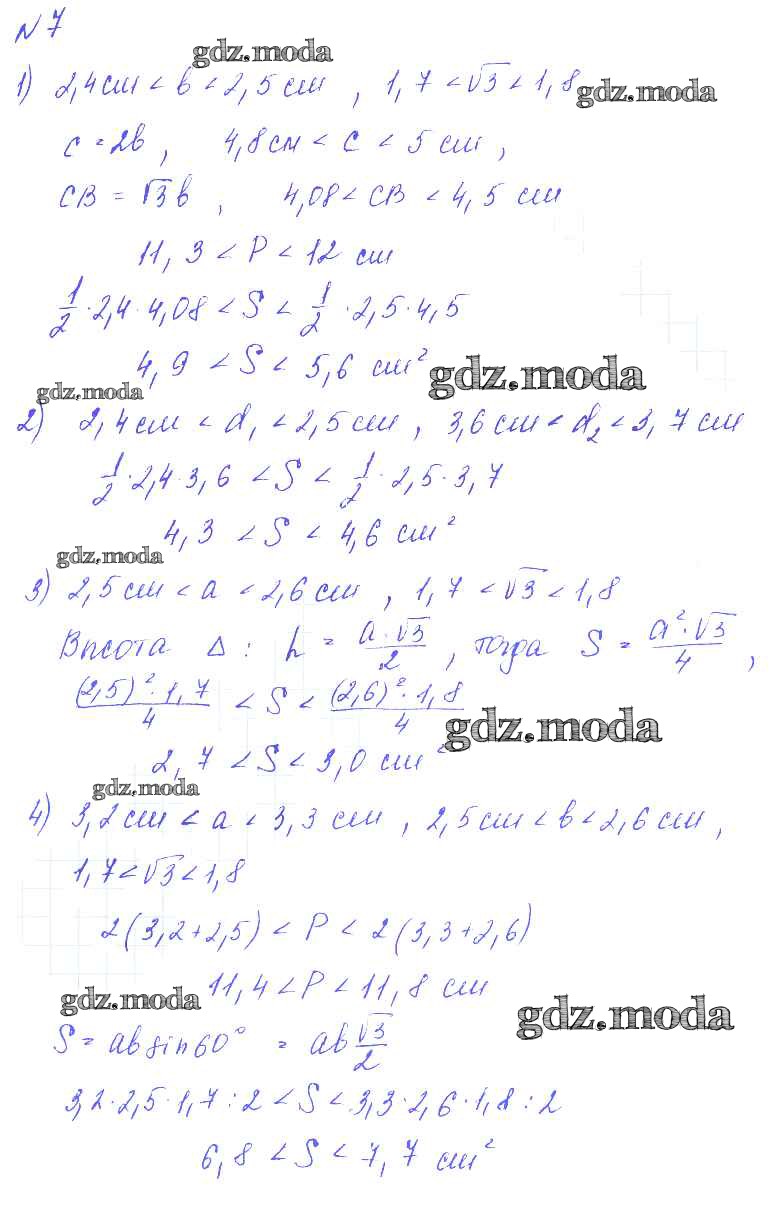 №7
gdz.moda
1) 2,4 см < b < 2,5 см , 1,7 < √3 < 1,8
gdz.moda
c = 2b , 4,8 см < c < 5 см ,
CB = √3 b , 4,08 < CB < 4,5 см
11,3 < P < 12 см
1/2 · 2,4 · 4,08 < S < 1/2 · 2,5 · 4,5
4,9 < S < 5,6 см²
gdz.moda
gdz.moda
2) 2,4 см < d₁ < 2,5 см , 3,6 см < d₂ < 3,7 см
1/2 · 2,4 · 3,6 < S < 1/2 · 2,5 · 3,7
4,3 < S < 4,6 см²
gdz.moda
3) 2,5 см < a < 2,6 см , 1,7 < √3 < 1,8
Высота Δ : h = a·√3/2 , тогда S = a²·√3/4 ,
(2,5)²·1,7/4 < S < (2,6)²·1,8/4
gdz.moda
2,7 < S < 3,0 см²
gdz.moda
4) 3,2 см < a < 3,3 см , 2,5 см < b < 2,6 см ,
1,7 < √3 < 1,8
2(3,2+2,5) < P < 2(3,3+2,6)
11,4 < P < 11,8 см
gdz.moda
gdz.moda
S = ab sin60° = ab √3/2
3,2 · 2,5 · 1,7 : 2 < S < 3,3 · 2,6 · 1,8 : 2
6,8 < S < 7,7 см²